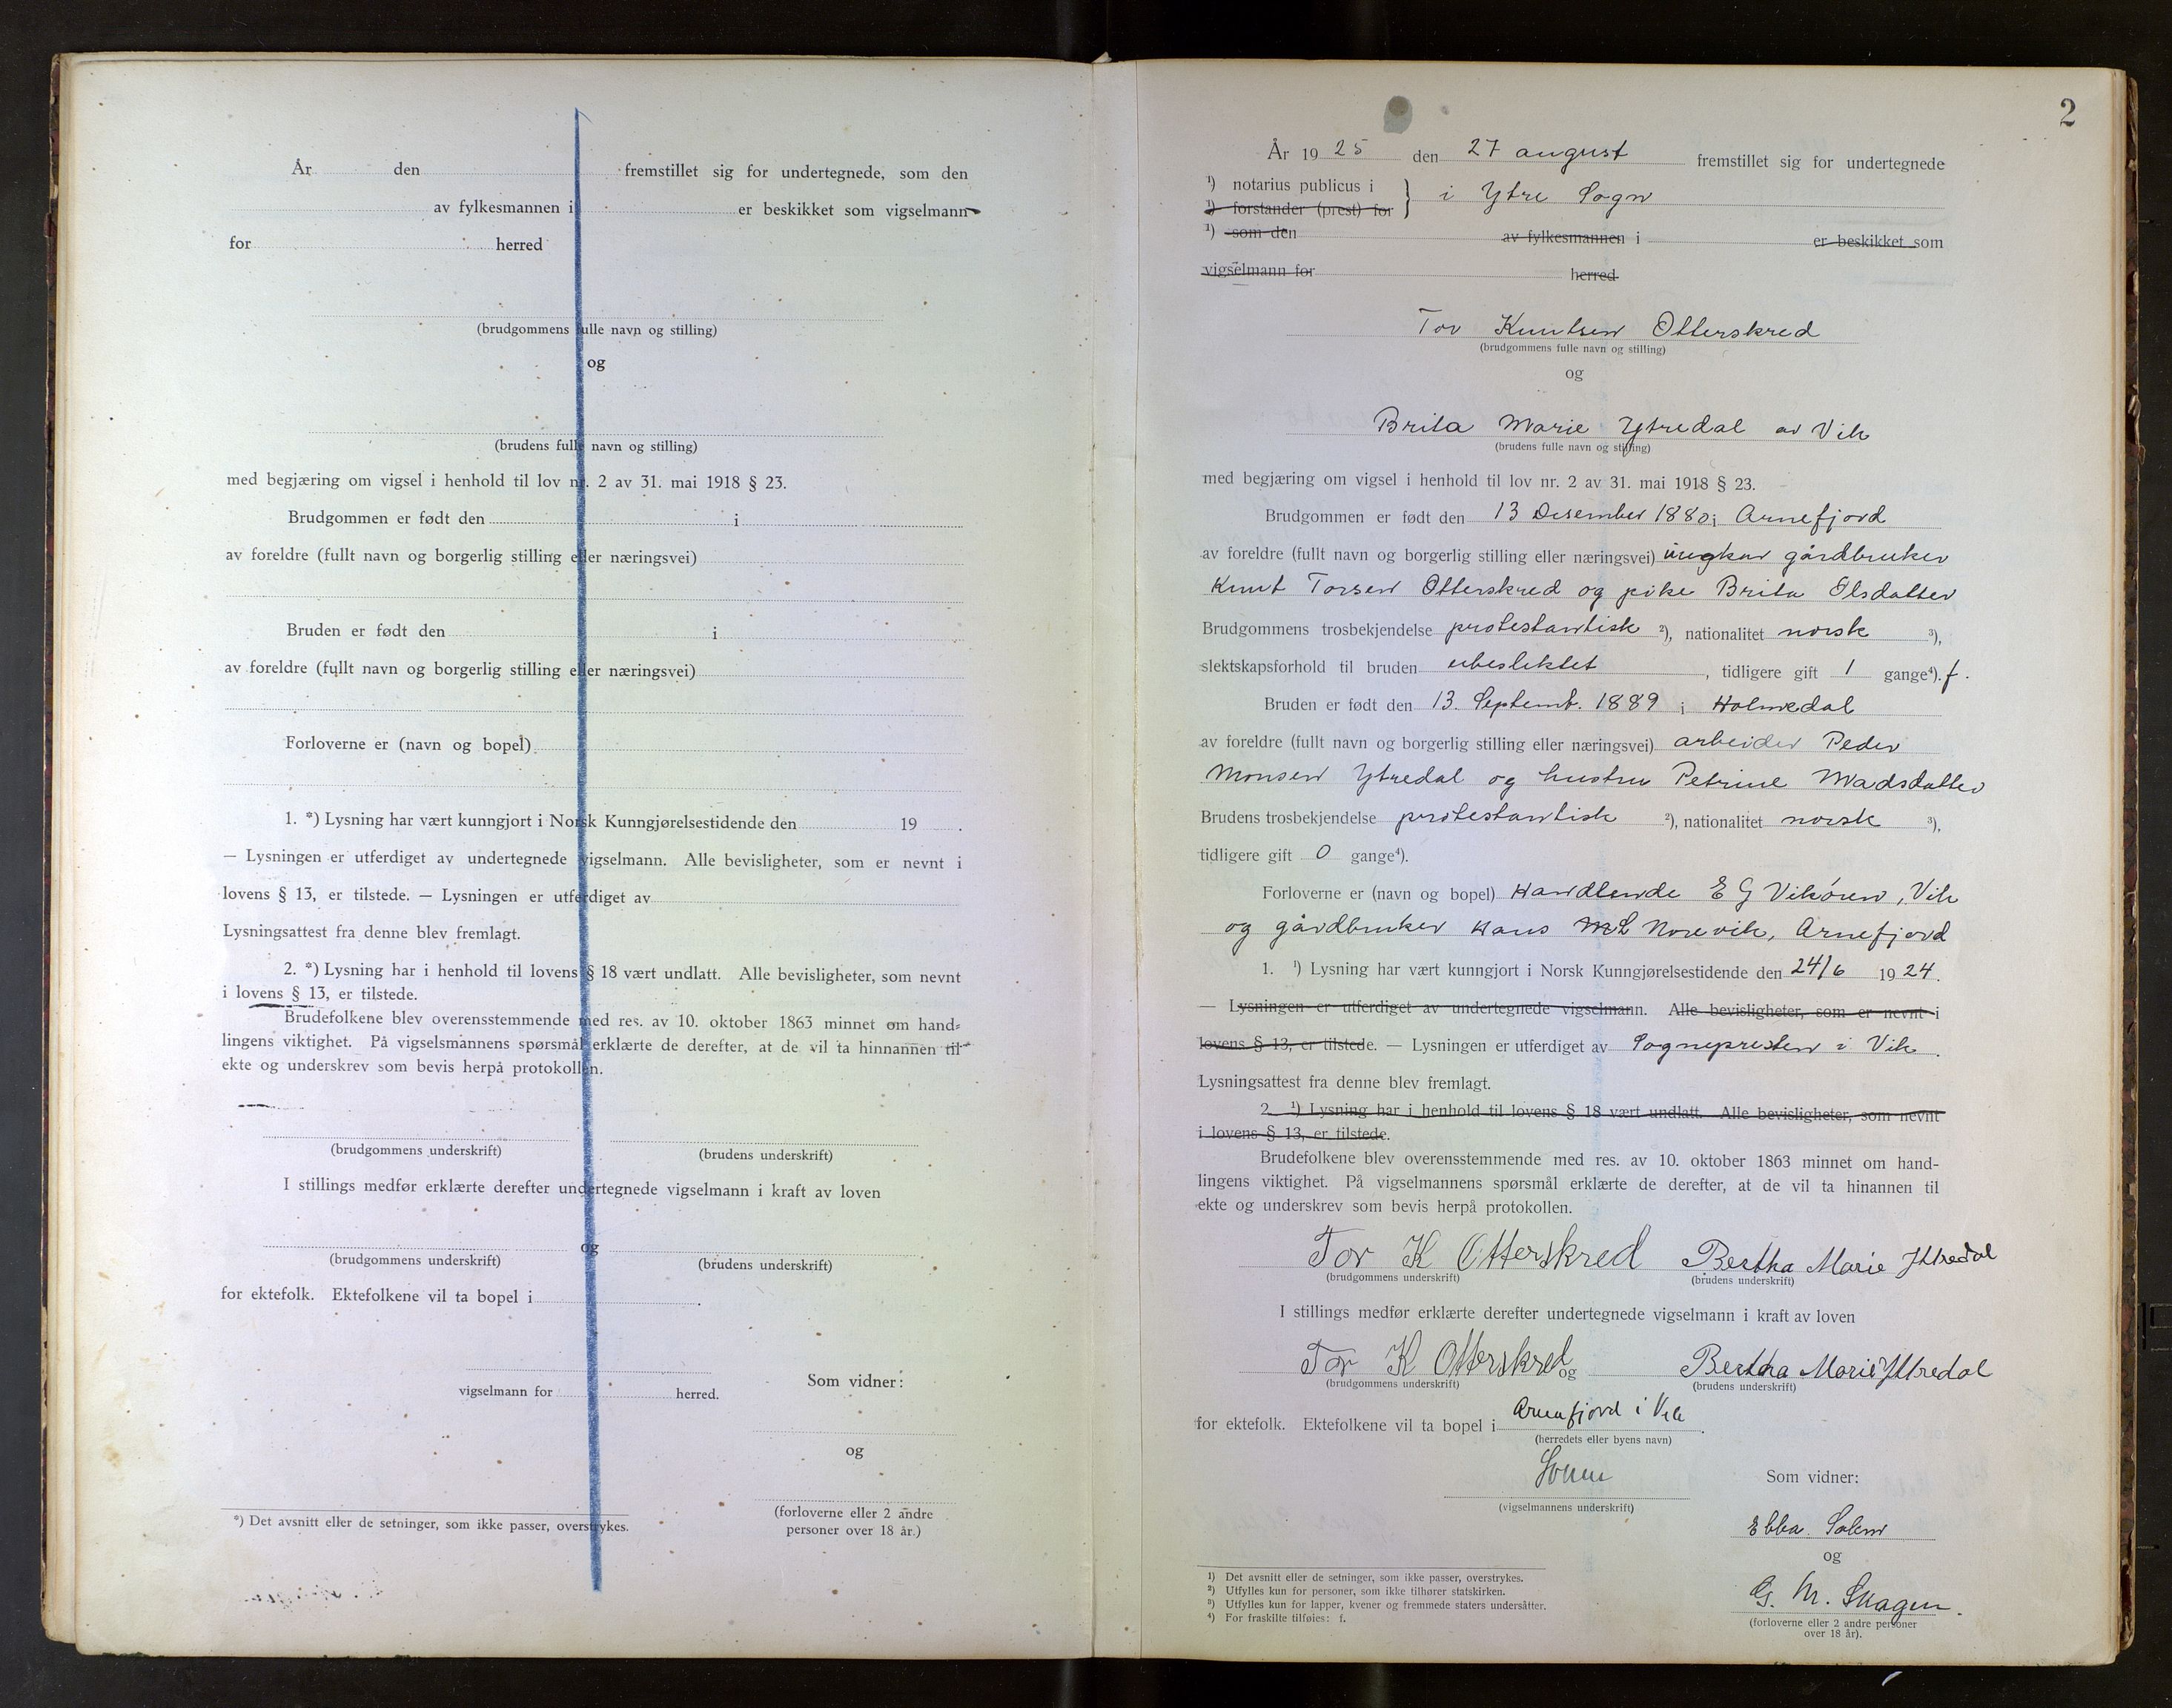 År den fremstillet sig for undertegnede, som den
av fylkesmannen i er beskikket som vigselmann
for herred
(brudgommens fulle navn og stilling)
og
(brudens fulle navn og stilling)
med begjæring om vigsel i henhold til lov nr. 2 av 31. mai 1918 § 23.
Brudgommen er født den i
av foreldre (fullt navn og borgerlig stilling eller næringsvei)
Bruden er født den i
av foreldre (fullt navn og borgerlig stilling eller næringsvei)
Forloverne er (navn og bopel)
1. *) Lysning har vært kunngjort i Norsk Kunngjørelsestidende den 19 .
— Lysningen er utferdiget av undertegnede vigselmann. Alle bevisligheter, som er nevnt i
lovens § 13, er tilstede. — Lysningen er utferdiget av
Lysningsattest fra denne blev fremlagt.
2. *) Lysning har i henhold til lovens § 18 vært undlatt. Alle bevisligheter, som nevnt
i lovens § 13, er tilstede.
Brudefolkene blev overensstemmende med res. av 10. oktober 1863 minnet om hand-
lingens viktighet. På vigselsmannens spørsmål erklærte de derefter, at de vil ta hinnannen til
ekte og underskrev som bevis herpå protokollen.
(brudgommens underskrift) (brudens underskrift)
I stillings medfør erklærte derefter undertegnede vigselmann i kraft av loven
og
(brudgommens underskrift) (brudens underskrift)
for ektefolk. Ektefolkene vil ta bopel i .
vigselmann for herred.
Som vidner:
og
(forloverne eller 2 andre
personer over 18 år.)
*) Det avsnitt eller de setninger, som ikke passer, overstrykes.
2
År 1925 den 27 august fremstillet sig for undertegnede
1) notarius publicus i
1) forstander (prest) for } i Ytre Sogn
1) som den av fylkesmannen i er beskikket som
vigselmann for herred
Tov Knutsen Otterskred
(brudgommens fulle navn og stilling)
og
Brita Marie Ytredal av Vik
(brudens fulle navn og stilling)
med begjæring om vigsel i henhold til lov nr. 2 av 31. mai 1918 § 23.
Brudgommen er født den 13 Desember 1880 i Arnefjord
av foreldre (fullt navn og borgerlig stilling eller næringsvei) ungkar gårdbruker
Knut Torsen Otterskred og pike Brita Olsdatter
Brudgommens trosbekjendelse protestantisk 2), nationalitet norsk 3),
slektskapsforhold til bruden ubeslektet , tidligere gift 1 gange4). f.
Bruden er født den 13. Septemb. 1889 i Holmedal
av foreldre (fullt navn og borgerlig stilling eller næringsvei) arbeider Peder
Monsen Ytredal og hustru Petrine Madsdatter
Brudens trosbekjendelse protestantisk 2), nationalitet norsk 3),
tidligere gift 0 gange4).
Forloverne er (navn og bopel) Handlende E G Vikören, Vik
og gårdbruker Hans L Norevik, Arnefjord
1. 1) Lysning har vært kunngjort i Norsk Kunngjørelsestidende den 24/6 1924.
— Lysningen er utferdiget av undertegnede vigselmann. Alle bevisligheter, som er nevnt i
lovens § 13, er tilstede. — Lysningen er utferdiget av Sognepresten i Vik .
Lysningsattest fra denne blev fremlagt.
2. 1) Lysning har i henhold til lovens § 18 vært undlatt. Alle bevisligheter, som nevnt
i lovens § 13, er tilstede.
Brudefolkene blev overensstemmende med res. av 10. oktober 1863 minnet om hand-
lingens viktighet. På vigselmannens spørsmål erklærte de derefter, at de vil ta hinannen til
ekte og underskrev som bevis herpå protokollen.
Tor K Otterskred Bertha Marie Yttredal
(brudgommens underskrift) (brudens underskrift)
I stillings medfør erklærte derefter undertegnede vigselmann i kraft av loven
Tor K Otterskred og Bertha Marie Yttredal
(brudgommens underskrift) (brudens underskrift)
for ektefolk. Ektefolkene vil ta bopel i Arnefjord i Vik .
(herredets eller byens navn)
(vigselmannens underskrift)
Som vidner:
Ebba Solem
og
G. M. Skagen.
(forloverne eller 2 andre personer
over 18 år).
1) Det avsnitt eller de setninger, som ikke passer, overstrykes.
2) Utfylles kun for personer, som ikke tilhører statskirken.
3) Utfylles kun for lapper, kvener og fremmede staters undersåtter.
4) For fraskilte tilføies: f.